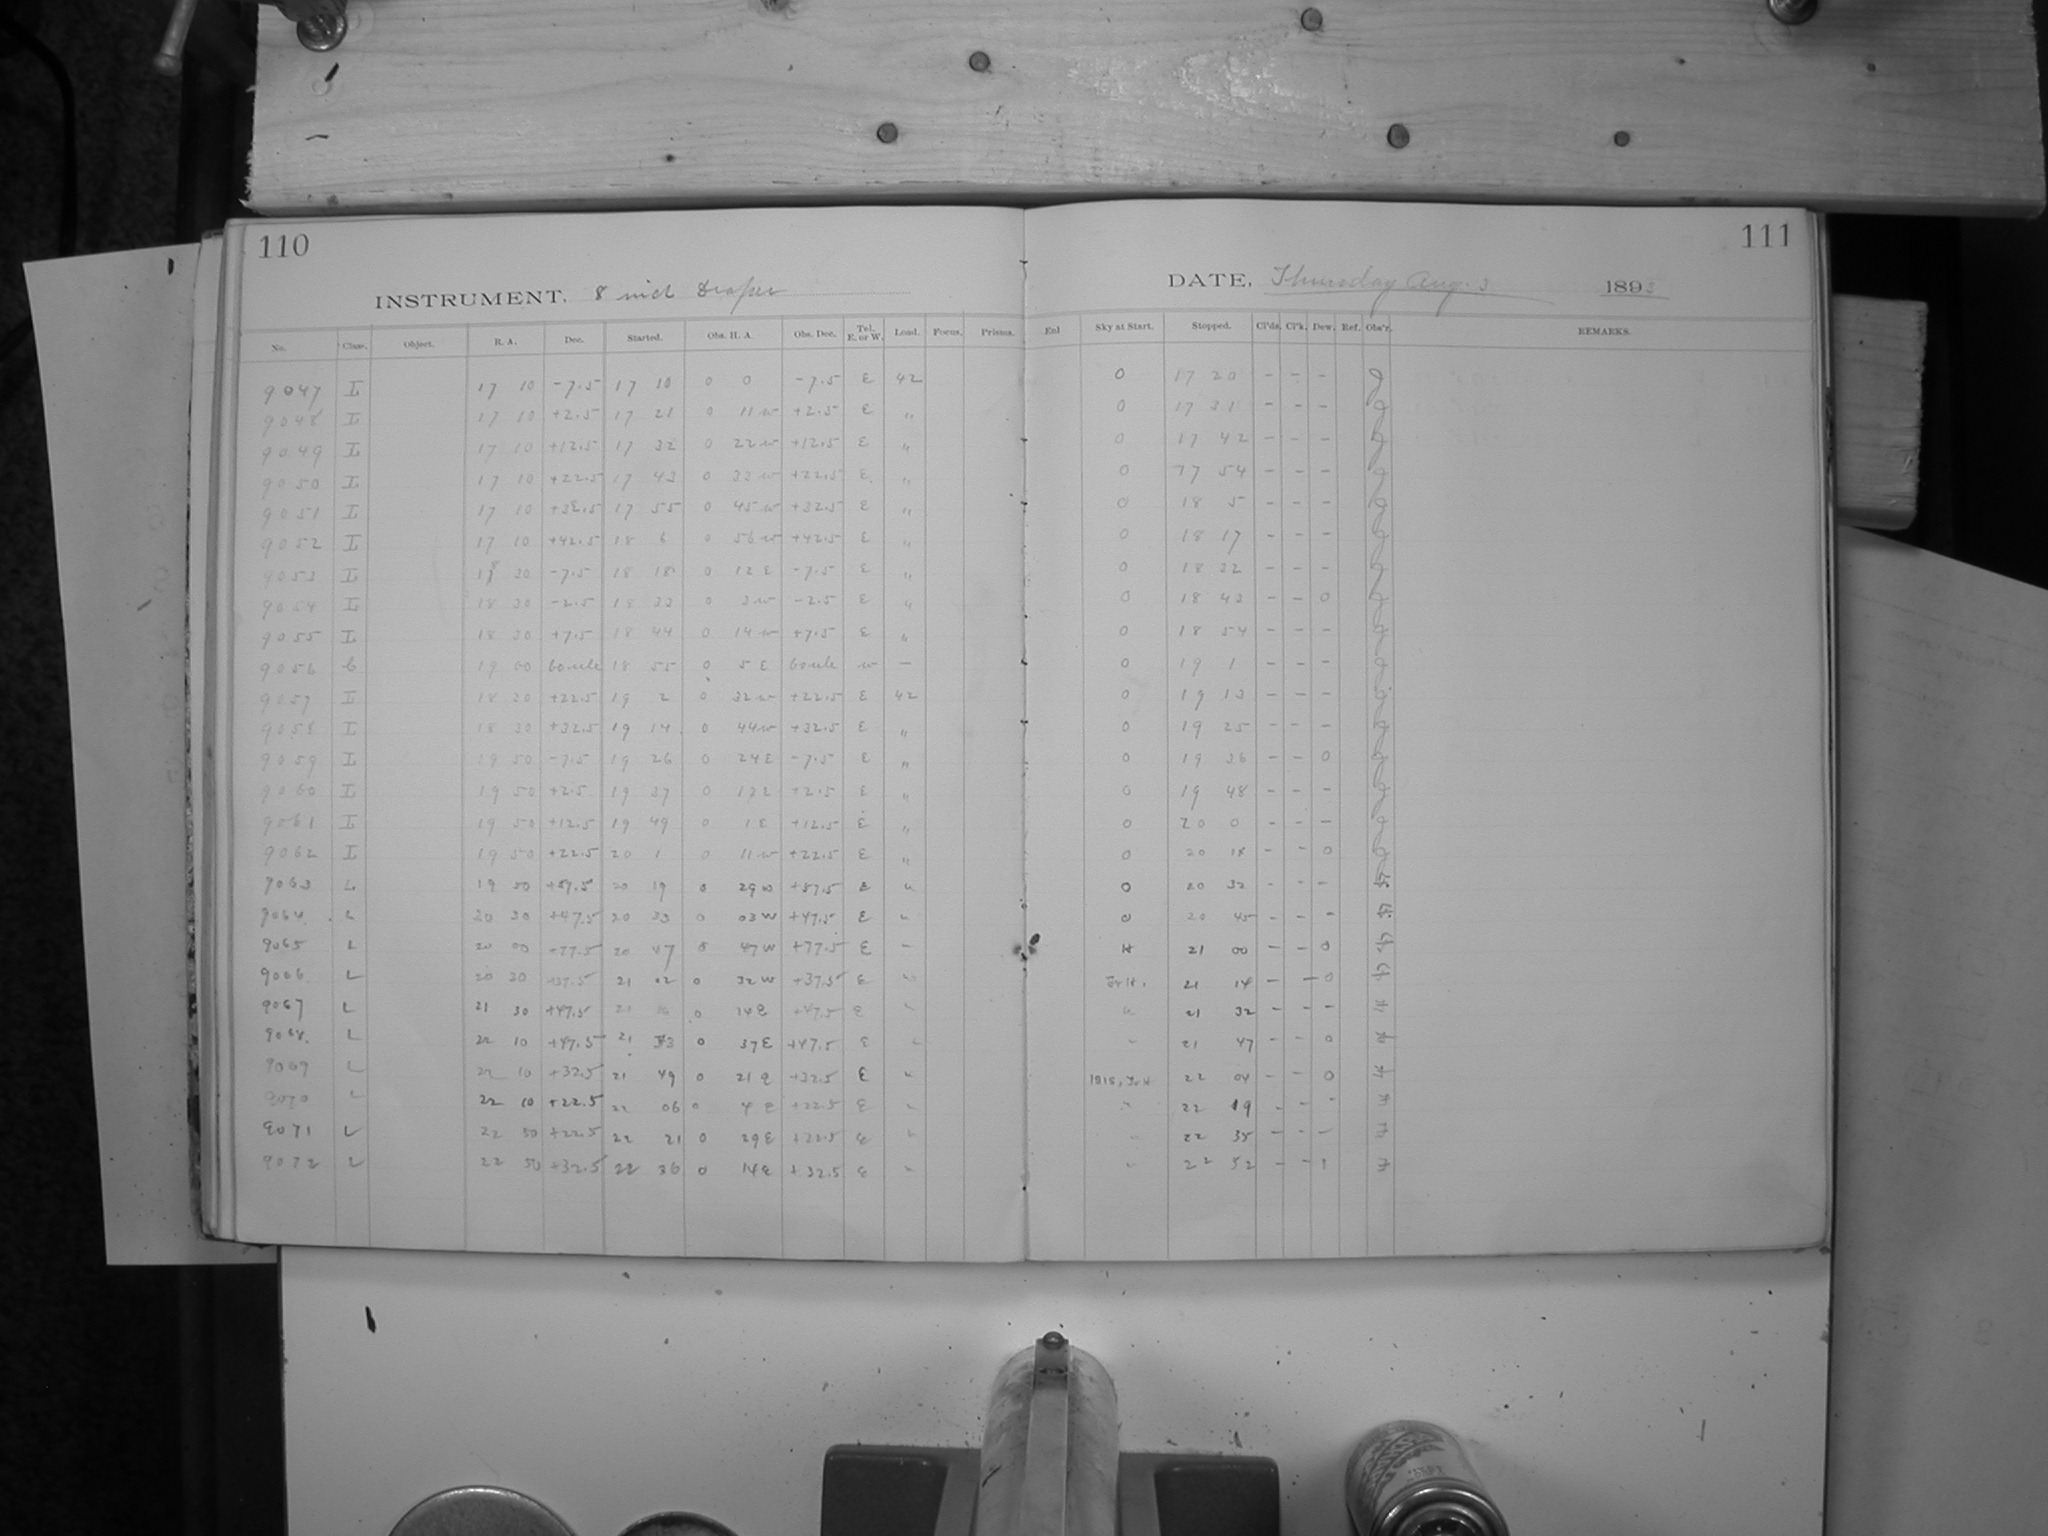 110
111
INSTRUMENT. 8 inch Draper
DATE, Thursday Aug. 3 1893
No. Class. Object. R. A. Dec. Started. Obs. H. A. Obs. Dec. Tel. E. or W. Load. Focus. Prisms. Enl Sky at Start. Stopped. Cl'ds. Cl'k. Dew. Ref. Obs'r. REMARKS.
9047 I 17 10 -7.5 17 10 0 0 -7.5 E 42 0 17 20 - - -
9048 I 17 10 +2.5 17 21 0 11 w +2.5 E " 0 17 31 - - -
9049 I 17 10 +12.5 17 32 0 22 w +12.5 E " 0 17 42 - - -
9050 I 17 10 +22.5 17 43 0 33 w +22.5 E " 0 17 54 - - -
9051 I 17 10 +32.5 17 55 0 45 w +32.5 E " 0 18 5 - - -
9052 I 17 10 +42.5 18 6 0 56 w +42.5 E " 0 18 17 - - -
9053 I 18 30 -7.5 18 18 0 12 E -7.5 E " 0 18 22 - - -
9054 I 18 30 -2.5 18 33 0 3 w -2.5 E " 0 18 43 - - 0
9055 I 18 30 +7.5 18 44 0 14 w +7.5 E " 0 18 54 - - -
9056 6 19 00 18 55 0 5 E w - 0 19 1 - - -
9057 I 18 30 +22.5 19 2 0 32 w +22.5 E 42 0 19 13 - - -
9058 I 18 30 +32.5 19 14 0 44 w +32.5 E " 0 19 25 - - -
9059 I 19 50 -7.5 19 26 0 24 E -7.5 E " 0 19 36 - - 0
9060 I 19 50 +2.5 19 37 0 13 E +2.5 E " 0 19 48 - - -
9061 I 19 50 +12.5 19 49 0 1 E +12.5 E " 0 20 0 - - -
9062 I 19 50 +22.5 20 1 0 11 w +22.5 E " 0 20 14 - - 0
9063 L 19 50 +57.5 20 19 0 29 w +57.5 E " 0 20 32 - - -
9064 L 20 30 +47.5 20 33 0 03 W +47.5 E " 0 20 45 - - -
9065 L 20 00 +77.5 20 47 0 47 W +77.5 E - H 21 00 - - 0
9066 L 20 30 +37.5 21 02 0 32 W +37.5 E " 21 14 - - 0
9067 L 21 30 +47.5 21 0 14 E +47.5 E " " 21 32 - - -
9068 L 22 10 +47.5 21 33 0 37 E +47.5 E " " 21 47 - - 0
9069 L 22 10 +32.5 21 49 0 21 E +32.5 E " 22 04 - - 0
9070 L 22 10 +22.5 22 06 0 4 E +22.5 E " " 22 19 - - -
9071 L 22 50 +22.5 22 21 0 29 E +22.5 E " " 22 35 - - -
9072 L 22 50 +32.5 22 36 0 14 E +32.5 E " " 22 52 - - 1